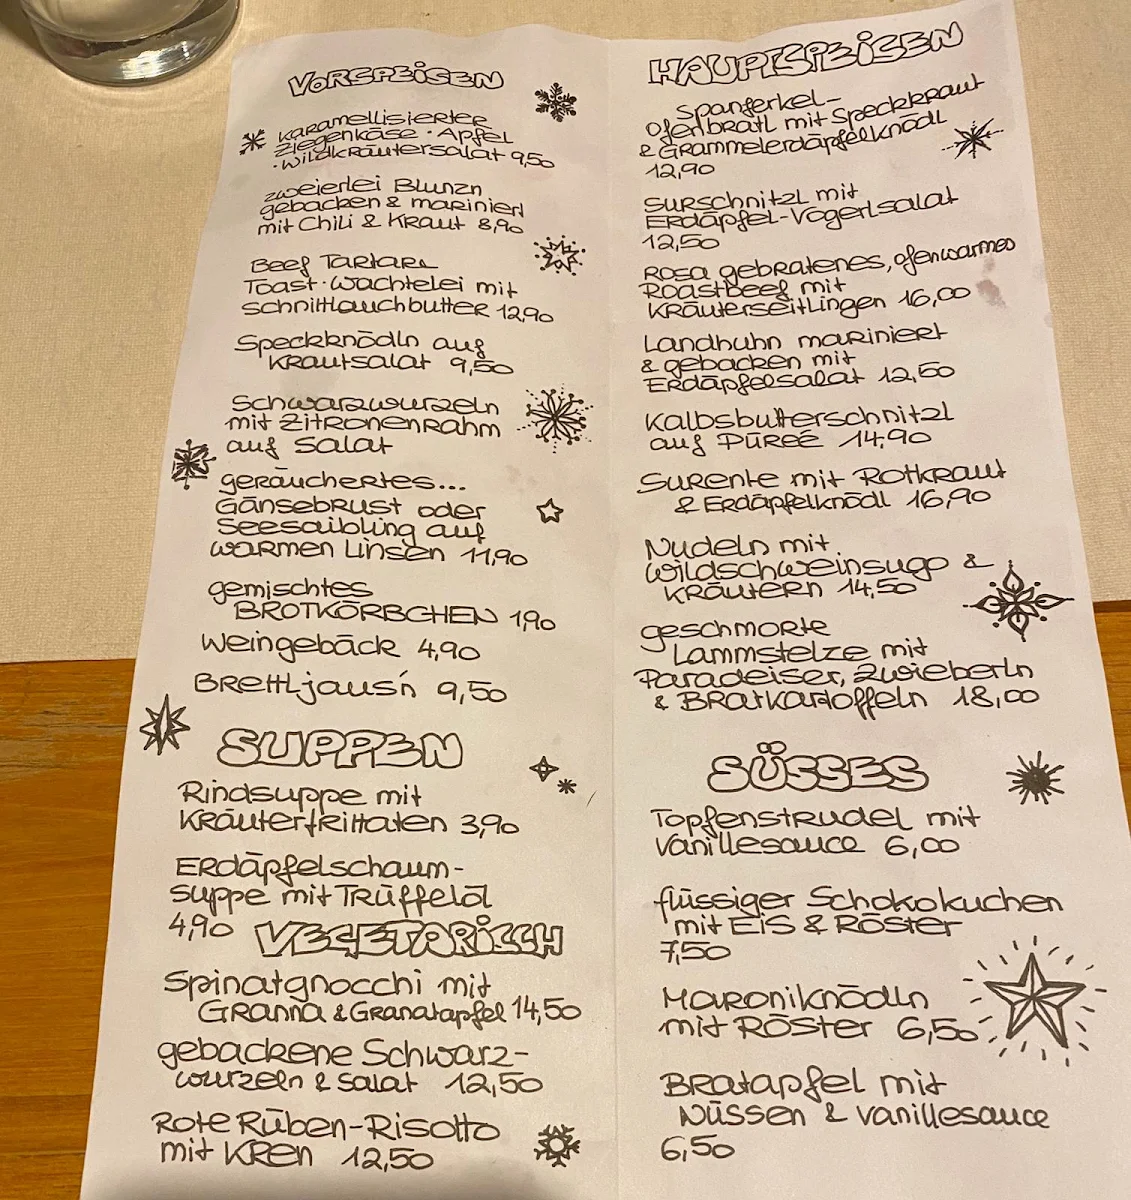 VORSPEISEN
karamellisierter
Ziegenkäse · Apfel
· Wildkräutersalat 9,50
zweierlei Blunzn
gebacken & mariniert
mit Chili & Kraut 8,90
Beef Tartare
Toast · Wachtelei mit
Schnittlauchbutter 12,90
Speckknödln auf
Krautsalat 9,50
Schwarzwurzeln
mit Zitronenrahm
auf Salat
geräuchertes...
Gänsebrust oder
Seesaibling auf
warmen Linsen 11,90
gemischtes
BROTKÖRBCHEN 1,90
Weingebäck 4,90
Brettljaus'n 9,50
SUPPEN
Rindsuppe mit
Kräuterfrittaten 3,90
Erdäpfelschaum-
suppe mit Trüffelöl
4,90
VEGETARISCH
Spinatgnocchi mit
Granna & Granatapfel 14,50
gebackene Schwarz-
wurzeln & Salat 12,50
Rote Rüben-Risotto
mit Kren 12,50
HAUPTSPEISEN
Spanferkel-
Ofenbratl mit Speckkraut
& Grammelerdäpfelknödl
12,90
Surschnitzl mit
Erdäpfel-Vogerlsalat
12,50
Rosa gebratenes, ofenwarmes
Roastbeef mit
Kräuterseitlingen 16,00
Landhuhn mariniert
& gebacken mit
Erdäpfelsalat 12,50
Kalbsbutterschnitzl
auf Püreé 14,90
Surente mit Rotkraut
& Erdäpfelknödl 16,90
Nudeln mit
Wildschweinsugo &
Kräutern 14,50
geschmorte
Lammstelze mit
Paradeiser, Zwieberln
& Bratkartoffeln 18,00
SÜSSES
Topfenstrudel mit
Vanillesauce 6,00
flüssiger Schokokuchen
mit Eis & Röster
7,50
Maroniknödln
mit Röster 6,50
Bratapfel mit
Nüssen & Vanillesauce
6,50